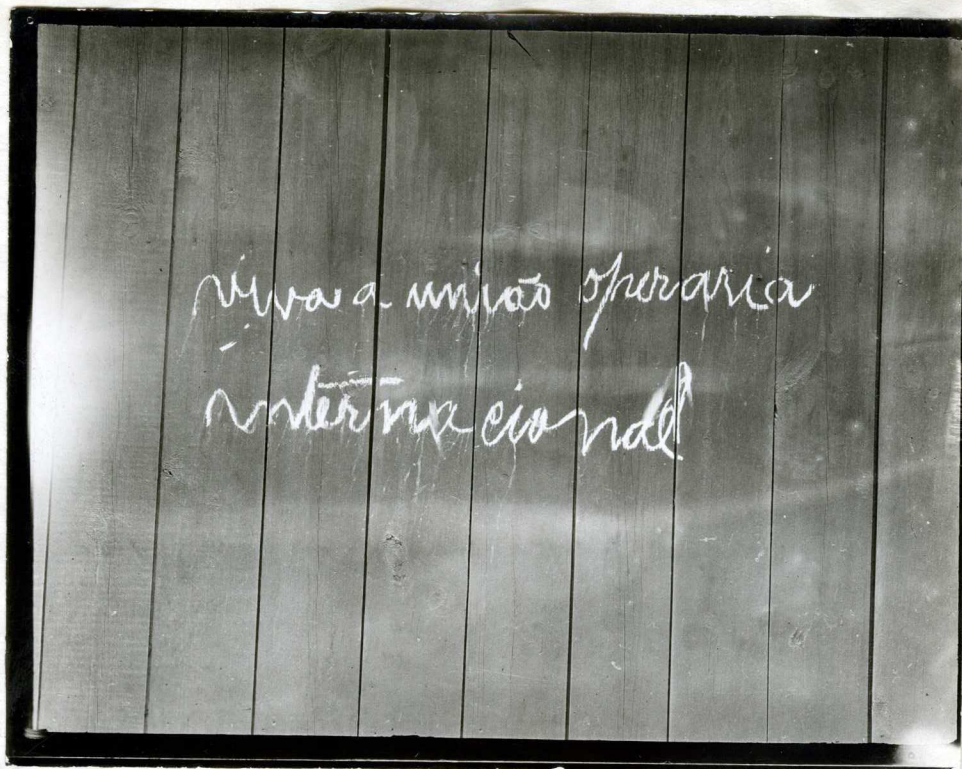 viva a união operaria
internacional